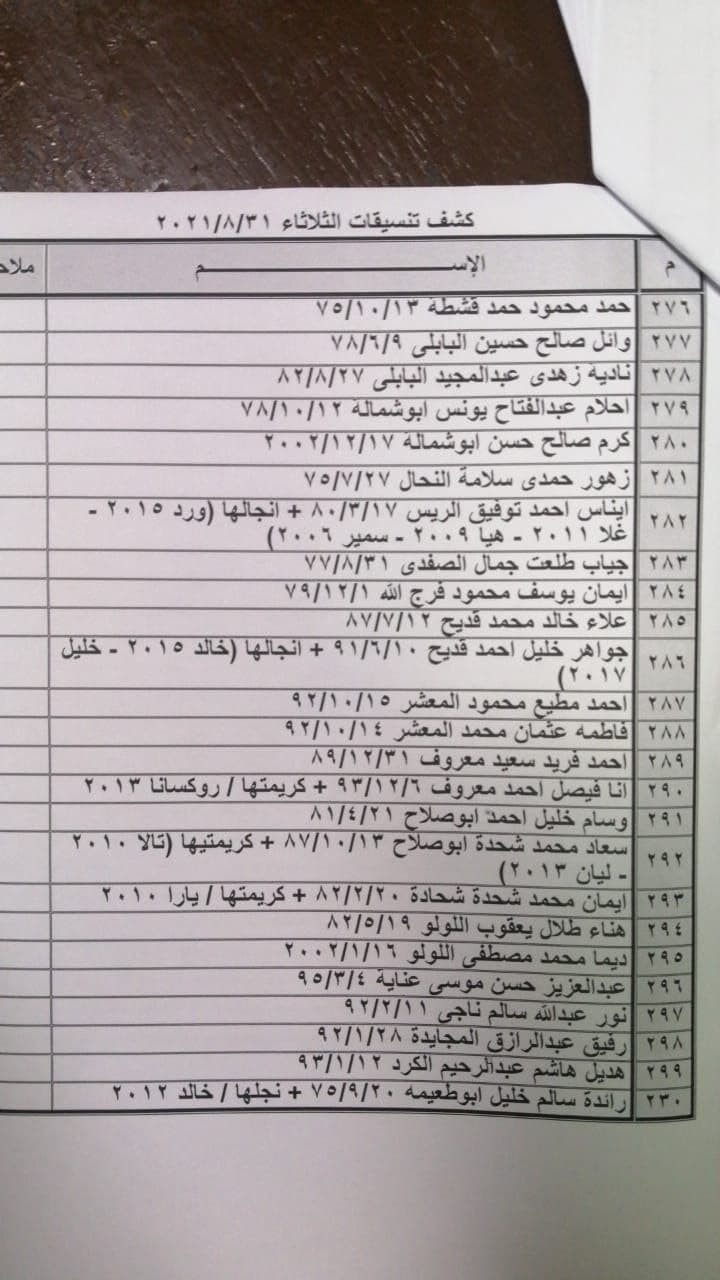 كشف تنسيقات الثلاثاء ٢٠٢١/٨/٣١
م الإســـــــــم ملاح
٢٧٦ حمد محمود حمد قشطة ٧٥/١٠/١٣
٢٧٧ وائل صالح حسين البابلى ٧٨/٦/٩
٢٧٨ نادية زهدى عبدالمجيد البابلى ٨٢/٨/٢٧
٢٧٩ احلام عبدالفتاح يونس ابوشمالة ٧٨/١٠/١٢
٢٨٠ كرم صالح حسن ابوشمالة ٢٠٠٢/١٢/١٧
٢٨١ زهور حمدى سلامة النحال ٧٥/٧/٢٧
٢٨٢ ايناس احمد توفيق الريس ٨٠/٣/١٧ + انجالها (ورد ٢٠١٥ -
غلا ٢٠١١ - هيا ٢٠٠٩ - سمير ٢٠٠٦)
٢٨٣ جياب طلعت جمال الصفدى ٧٧/٨/٣١
٢٨٤ ايمان يوسف محمود فرج الله ٧٩/١٢/١
٢٨٥ علاء خالد محمد قديح ٨٧/٧/١٢
٢٨٦ جواهر خليل احمد قديح ٩١/٦/١٠ + انجالها (خالد ٢٠١٥ - خليل
٢٠١٧)
٢٨٧ احمد مطيع محمود المعشر ٩٢/١٠/١٥
٢٨٨ فاطمه عثمان محمد المعشر ٩٢/١٠/١٤
٢٨٩ احمد فريد سعيد معروف ٨٩/١٢/٣١
٢٩٠ انا فيصل احمد معروف ٩٣/١٢/٦ + كريمتها / روكسانا ٢٠١٣
٢٩١ وسام خليل احمد ابوصلاح ٨١/٤/٢١
٢٩٢ سعاد محمد شحدة ابوصلاح ٨٧/١٠/١٣ + كريمتيها (تالا ٢٠١٠
- ليان ٢٠١٣)
٢٩٣ ايمان محمد شحدة شحادة ٨٢/٢/٢٠ + كريمتها / يارا ٢٠١٠
٢٩٤ هناء طلال يعقوب اللولو ٨٢/٥/١٩
٢٩٥ ديما محمد مصطفى اللولو ٢٠٠٢/١/١٦
٢٩٦ عبدالعزيز حسن موسى عناية ٩٥/٣/٤
٢٩٧ نور عبدالله سالم ناجى ٩٢/٢/١١
٢٩٨ رفيق عبدالرازق المجايدة ٩٢/١/٢٨
٢٩٩ هديل هاشم عبدالرحيم الكرد ٩٣/١/١٢
٢٣٠ رائدة سالم خليل ابوطعيمه ٧٥/٩/٢٠ + نجلها / خالد ٢٠١٢